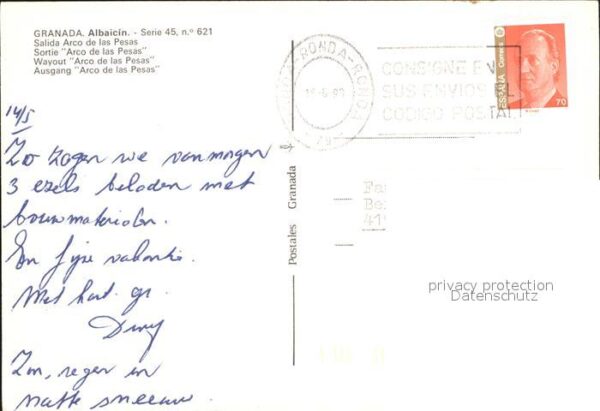 GRANADA. Albaicín. - Serie 45, n.º 621
Salida Arco de las Pesas
Sortie "Arco de las Pesas"
Wayout "Arco de las Pesas"
Ausgang "Arco de las Pesas"
14/5
Zo zagen we vanmorgen
3 ezels beladen met
bouwmaterialen.
En fijne vakantie.
Met hart. gr.
Zon, regen en
natte sneeuw.
Postales Granada
RONDA-RONDA
CONSIGNE EN
SUS ENVIOS EL
CODIGO POSTAL
ESPAÑA Correos
70
Fa
Be
41
privacy protection
Datenschutz